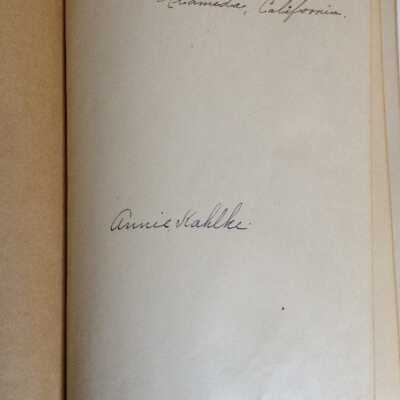 Alameda, California.
Annie Kahlke.